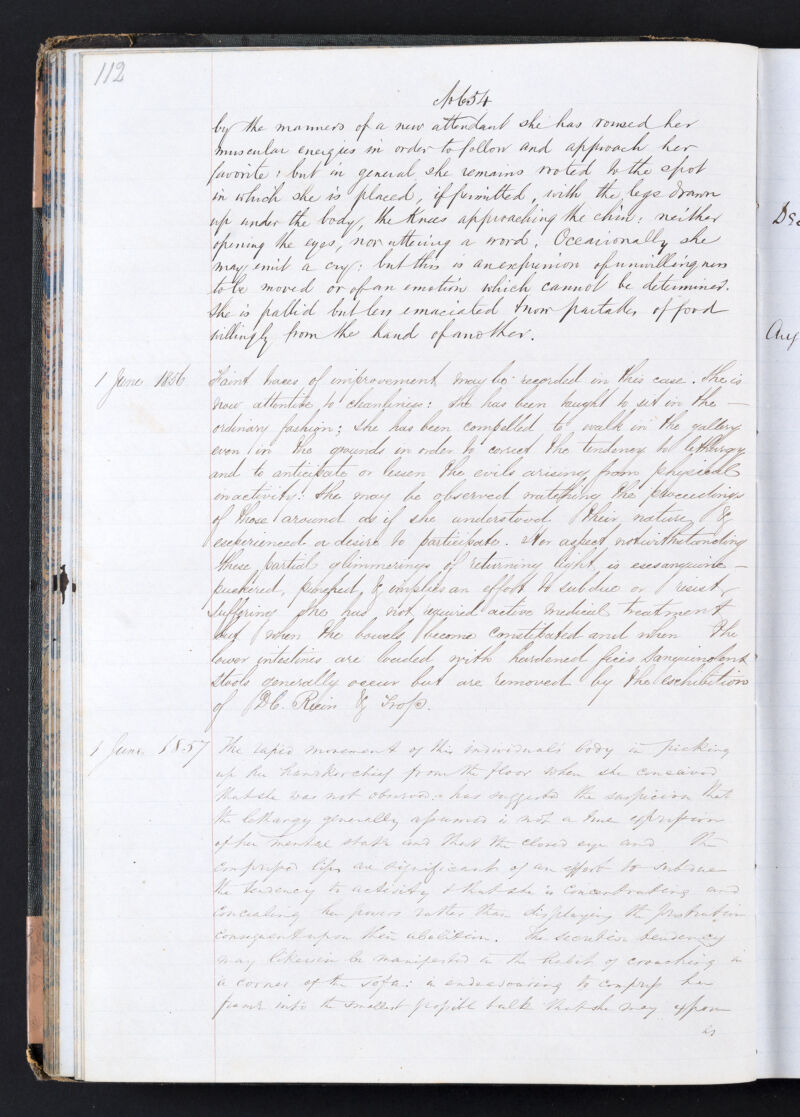 112
No 654
by the manners of a new attendant she has roused her
muscular energies in order to follow and approach her
favorite: but in general she remains rooted to the spot
in which she is placed, if permitted, with the legs drawn
up under the body, the knees approaching the chin: neither
opening the eyes, nor uttering a word. Occasionally she
may emit a cry: but this is an expression of unwillingness
to be moved or of an emotion which cannot be determined.
She is pallid but less emaciated & now partakes of food
willingly from the hand of another.
1 June 1856 Faint traces of improvement may be recorded in this case. She is
now attentive to cleanliness: she has been taught to sit in the –
ordinary fashion; she has been compelled to walk in the gallery
even in the grounds in order to correct the tendency to lethargy
and to anticipate or lessen the evils arising from physical
inactivity: She may be observed watching the proceedings
of those around as if she understood their nature &
experienced a desire to participate. Her aspect notwithstanding
these partial glimmerings of returning light is exsanguine –
puckered, pinched, & implies an effort to subdue or resist
suffering She has not required active medical treatment
but when the bowels become constipated and when the
lower intestines are loaded with hardened feces sanguinolent
stools generally occur but are removed by the exhibition
of Ricin &
1 June 1857 The rapid movement of this individual's body in picking
up her handkerchief from the floor when she conceived
that she was not observed has suggested the suspicion that
the lethargy generally assumed is not a true expression
of her mental state and that the closed eye and the
compressed lips are significant of an effort to subdue
the tendency to activity & that she is concentrating and
concealing her powers rather than displaying the prostration
consequent upon their abolition. The secretive tendency
may likewise be manifested in the habit of crouching in
a corner of the sofa: in endeavouring to compress her
frame into the smallest possible bulk that she may appear
as
Aug